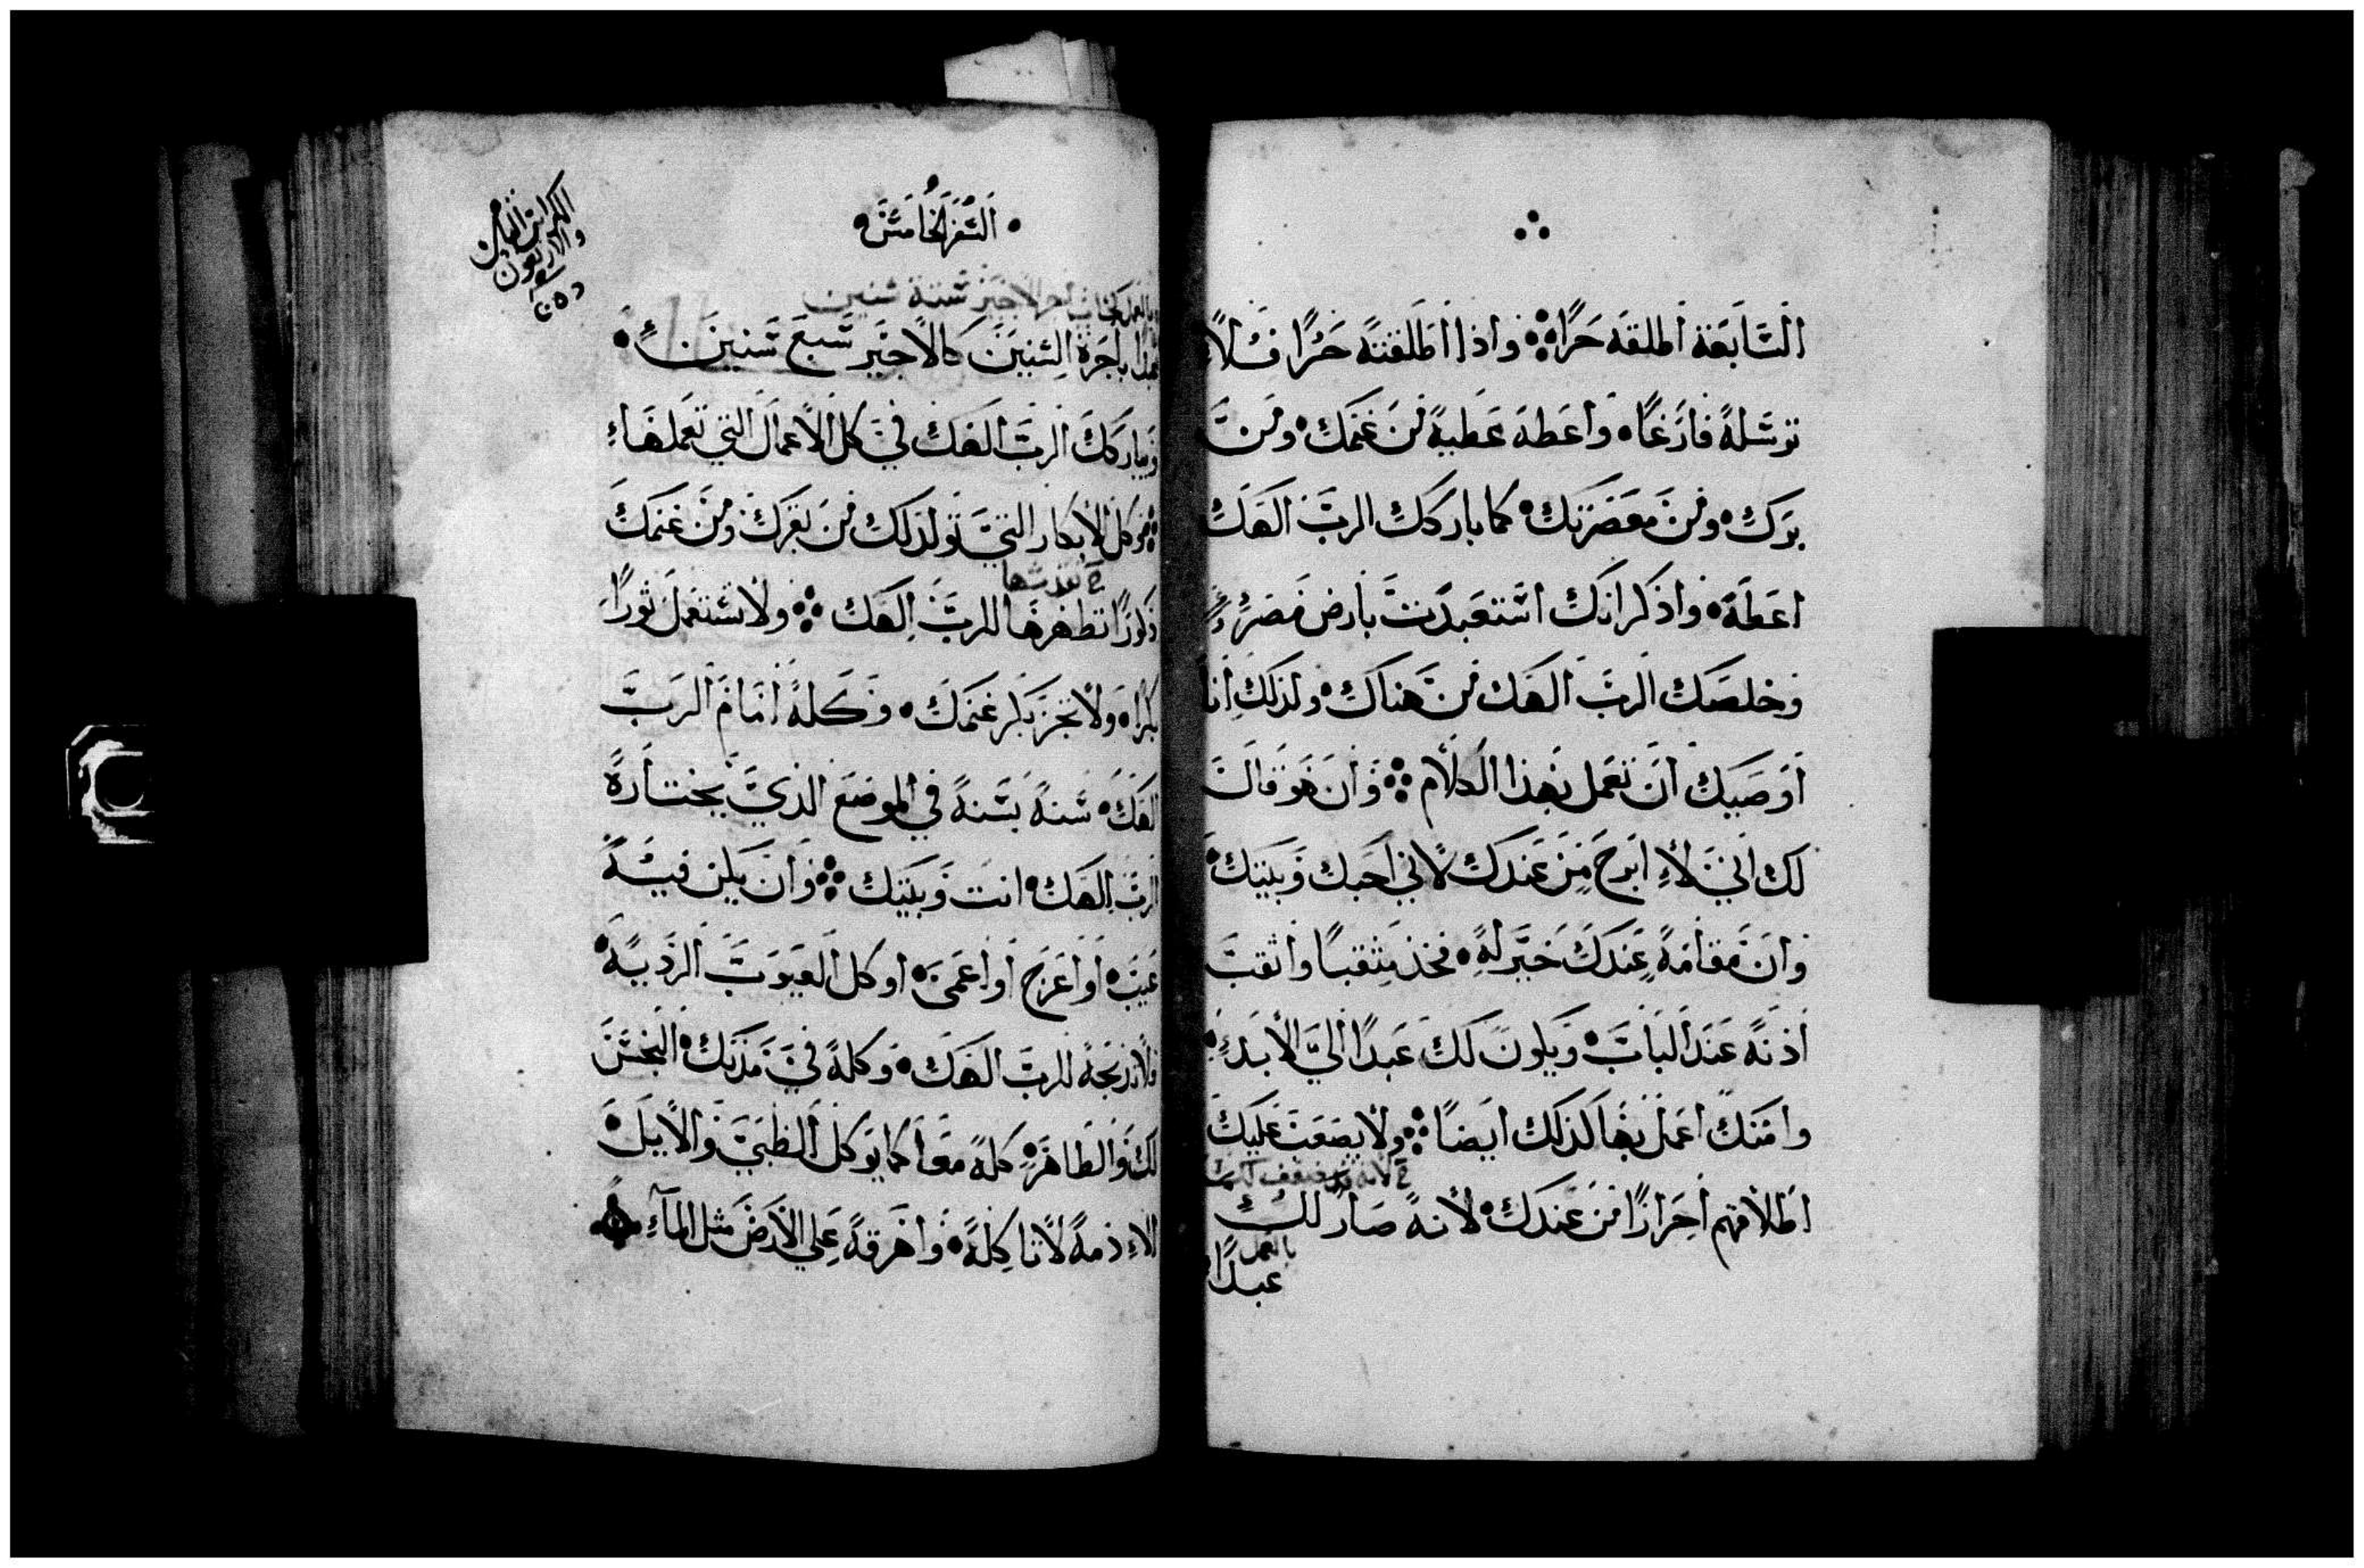 السَّابعَة اطلقه حرًا ⁘ واذا اطلقته حرًا فلا
ترسله فارغًا • واعطه عطية من غنمك • ومن
برك • ومن معصرتك • كما باركك الرب الهك
اعطه • واذكر انك استعبدت بارض مصر
وخلصك الرب الهك من هناك • ولذلك انا
اوصيك ان تعمل بهذا الكلام ⁘ وان هو قال
لك اني لا ابرح من عندك لاني احبك وبيتك •
وان مقامه عندك خير له • فخذ مثقبا واثقب
اذنه عند الباب • ويكون لك عبدًا الي الابد •
وامتك اعمل بها كذلك ايضًا ⁘ ولا يصعب عليك
خ لانه
اطلاقهم احرارًا من عندك • لانه صار لك
بالعمل
عبدًا
• السفر الخامس •
الكراس الثامن
والاربعون
الاجير ستة سنين
عبدا باجرة السنين كالاجير سبع سنين •
ويباركك الرب الهك في كل الاعمال التي تعملها
⁘ وكل الابكار التي تولد لك من بقرك ومن غنمك
خ تقدسها
ذكورًا تطهرها للرب الهك ⁘ ولا تستعمل ثورًا
بكرا • ولا تجز بكر غنمك • وكله امام الرب
الهك • سنة بسنة في الموضع الذي يختاره
الرب الهك • انت وبيتك ⁘ وان يكن فيه
عيب • او اعرج او اعمى • او كل العيوب الردية •
فلا تذبحه للرب الهك • وكله في مدنك • النجس
لك والطاهر • كله معا كما يوكل الظبي والايل •
الا دمه لا تاكله • واهرقه علي الارض مثل المآء